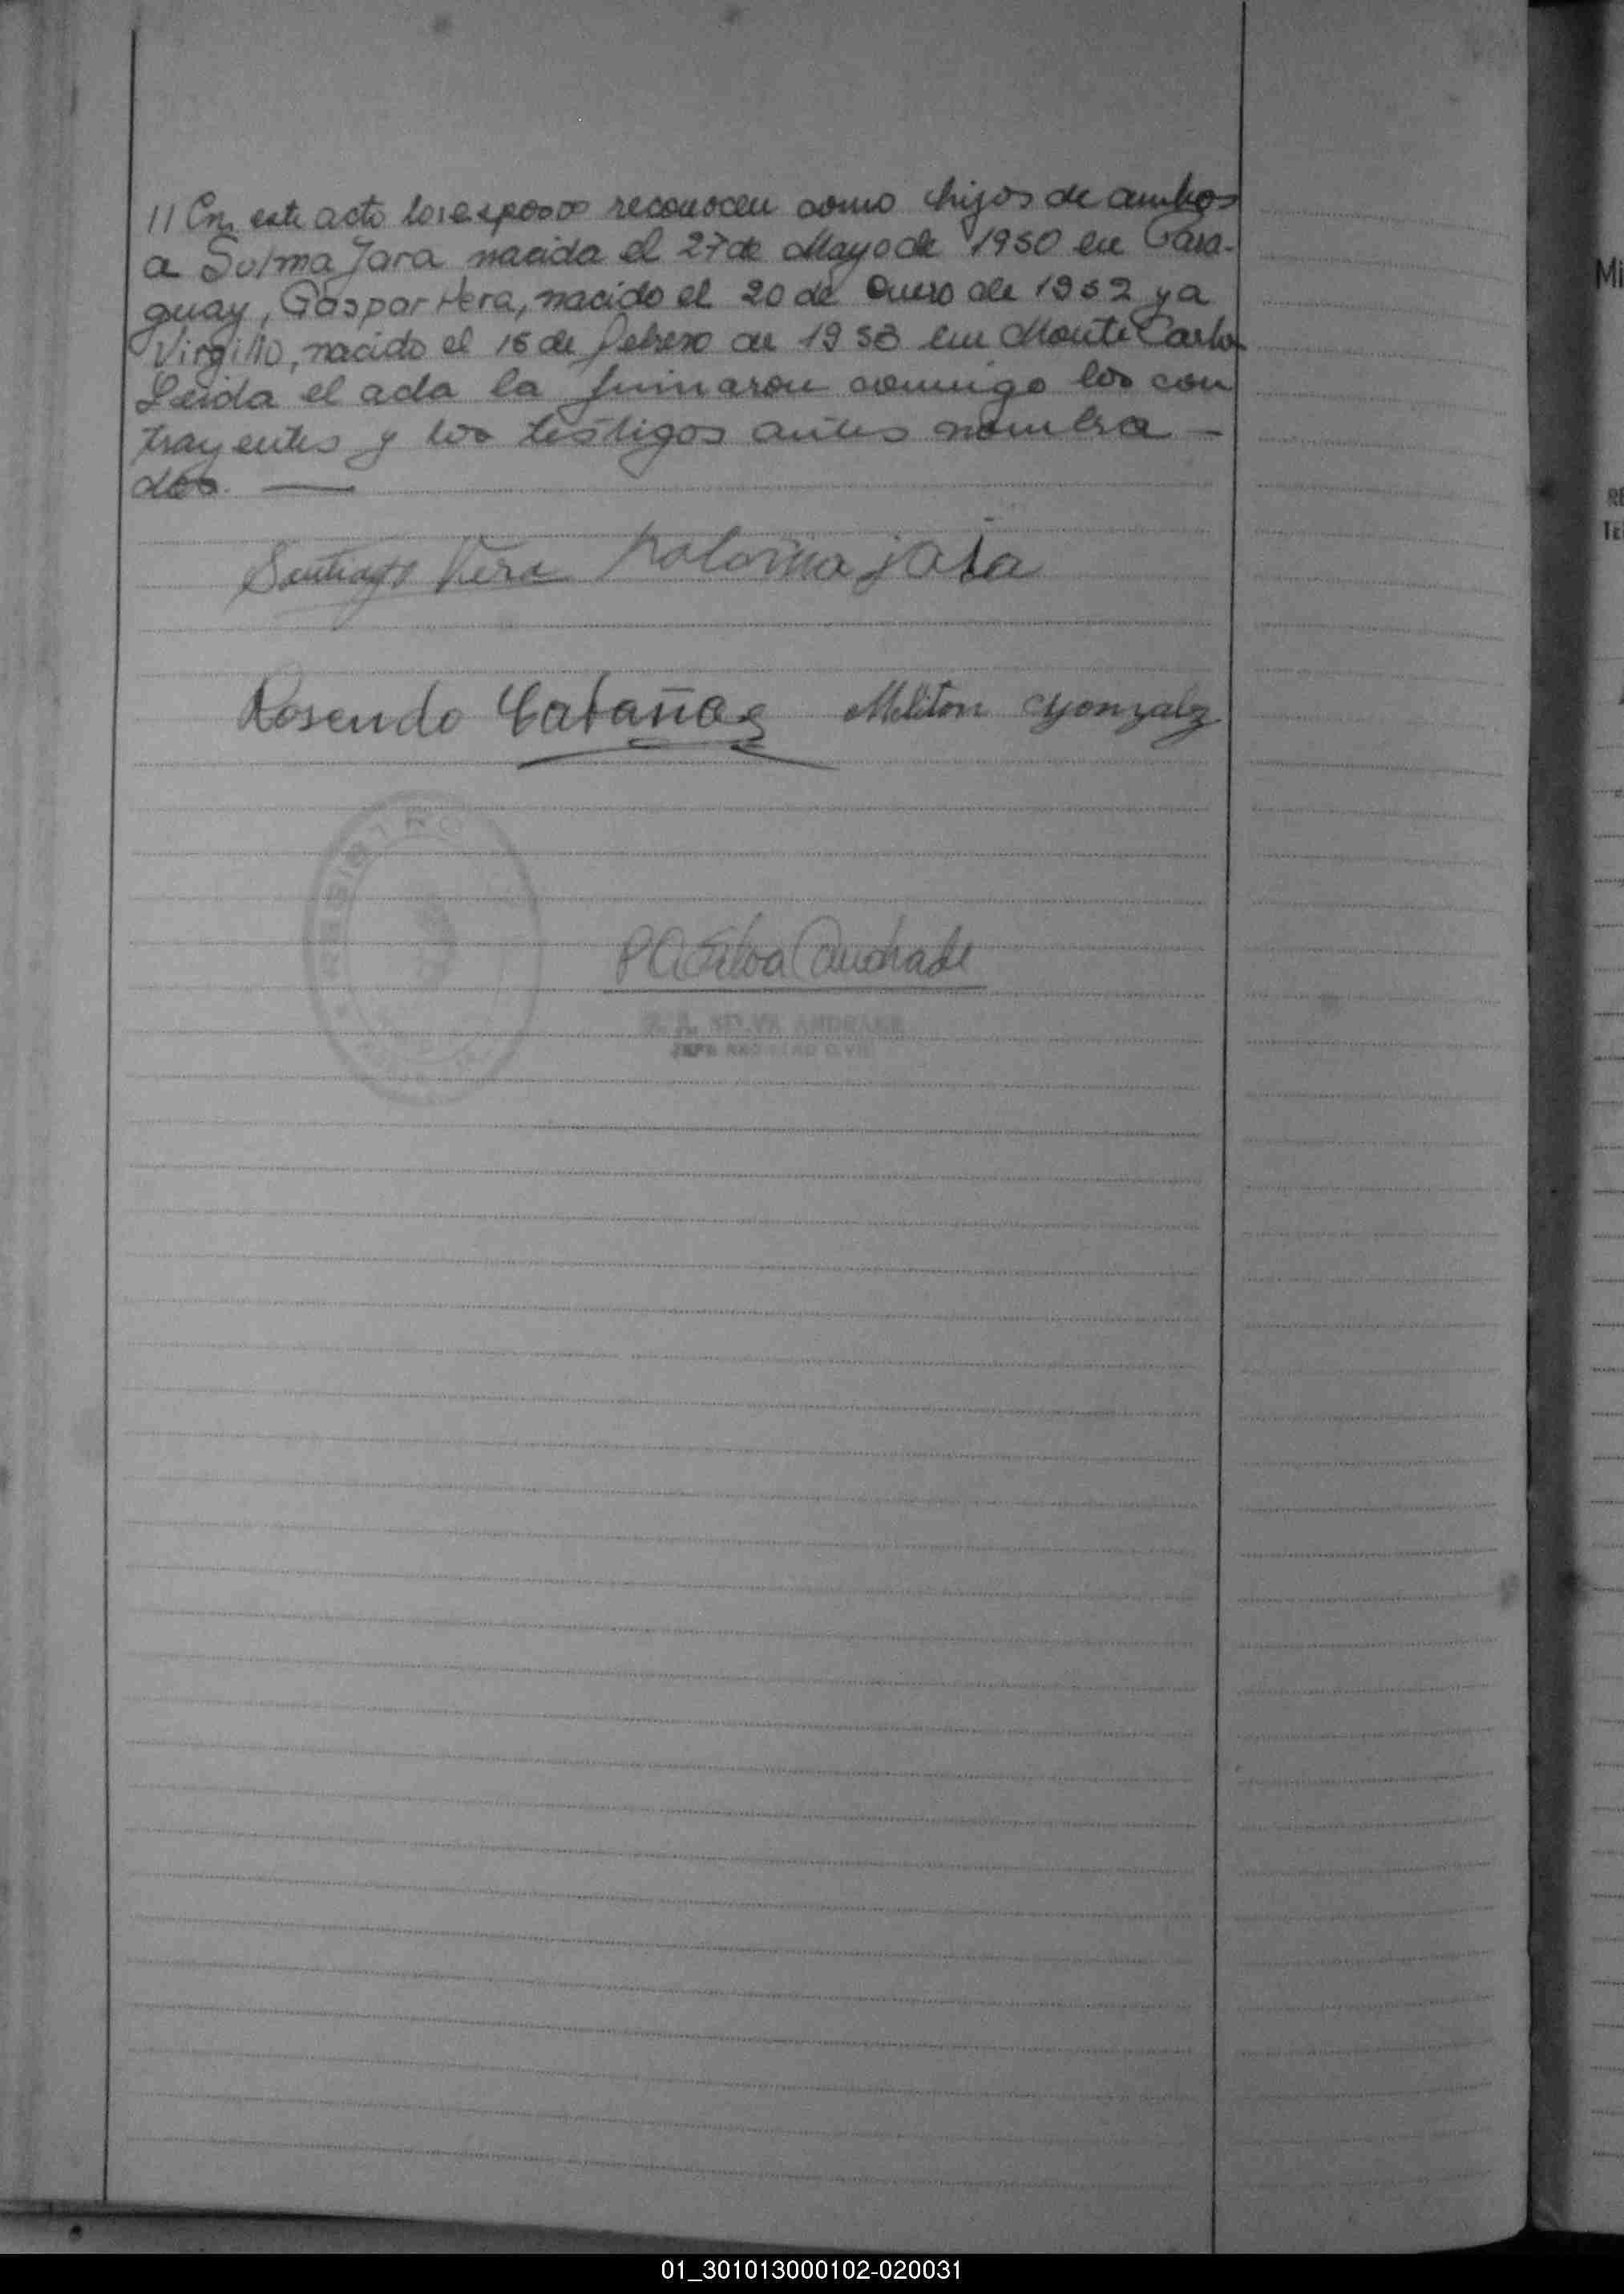 // En este acto los esposos reconocen como hijos de ambos
a Sulma Jara nacida el 27 de Mayo de 1950 en Para-
guay, Gaspar Hera, nacido el 20 de Enero de 1952 y a
Virgilio, nacido el 15 de febrero de 1953 en Monte Carlo
Leida el acta la firmaron conmigo los con
trayentes y los testigos antes nombra-
dos. —
Santiago Vera Paloma jara
Rosendo Cabañas Meliton Gonzalez
REGISTRO
P A Silva Andrade
P. A. SILVA ANDRADE
JEFE REGISTRO CIVIL
Mi
01_301013000102-020031